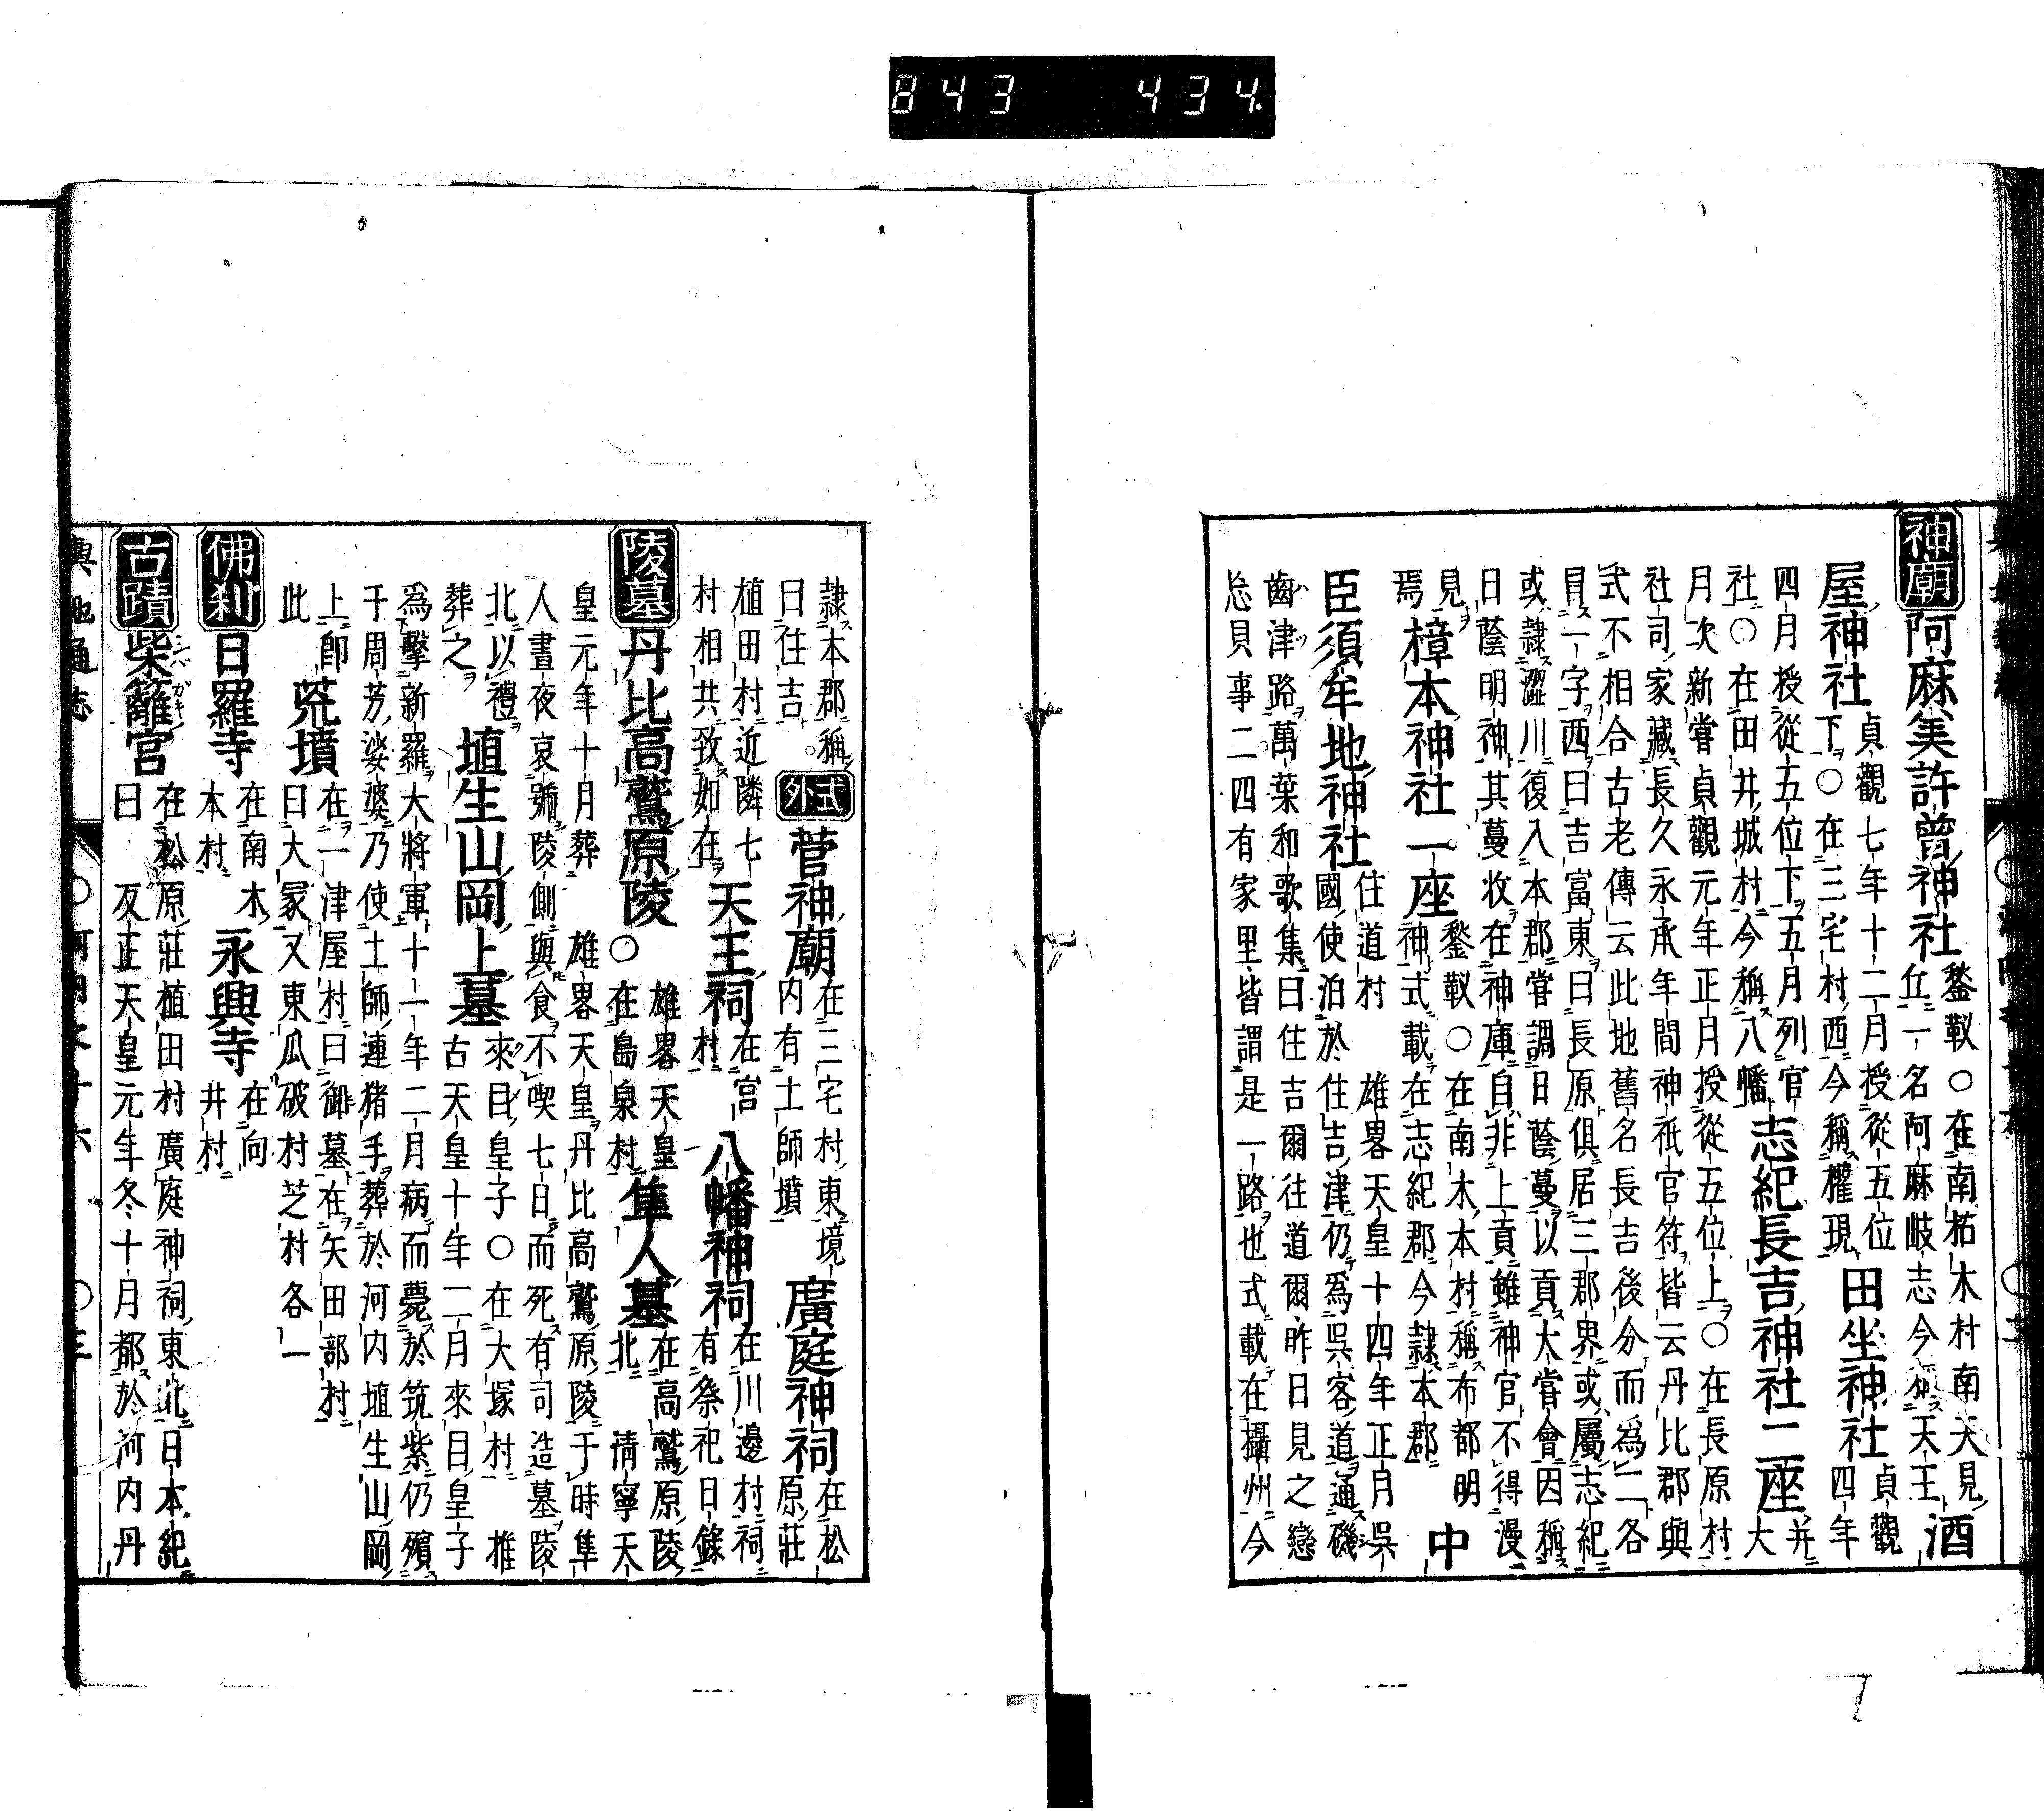 843 434
神廟 阿麻美許曽神社 鍫靫○在南枯木村南天見
丘一名阿麻岐志今稱天王 酒
屋神社 貞觀七年十二月授從五位
下○在三宅村西今稱權現 田坐神社 貞觀
四年
四月授從五位下五月列官
社○在田井城村今稱八幡 志紀長吉神社二座 并
大
月次新嘗貞觀元年正月授從五位上○在長原村
社司家藏長久永承年間神祇官符皆云丹比郡與
式不相合古老傳云此地舊名長吉後分而為二各
冒一字西曰吉富東曰長原俱居三郡界或屬志紀
或隷澀川復入本郡嘗調日蔭蔓以貢大嘗會因稱
日蔭明神其蔓收在神庫自非上貢雖神官不得漫
見
焉 樟本神社一座 鍫靫○在南木本村稱布都明
神式載在志紀郡今隷本郡 中
臣須牟地神社 住道村 雄畧天皇十四年正月吳
國使泊於住吉津仍為吳客道通磯
齒津路萬葉和歌集曰住吉爾往道爾昨日見之戀
忘貝事二四有家里皆謂是一路也式載在攝州今
隷本郡稱
曰住吉 式外 菅神廟 在三宅村東境
内有土師墳 廣庭神祠 在松
原莊
植田村近隣七
村相共致如在 天王祠 在宮
村 八幡神祠 在川邊村祠
有祭祀日錄
陵墓 丹比高鷲原陵 雄畧天皇
○在島泉村 隼人墓 在高鷲原陵
北 清寧天
皇元年十月葬 雄畧天皇丹比高鷲原陵于時隼
人晝夜哀號陵側與食不喫七日而死有司造墓陵
北以禮
葬之 埴生山岡上墓 來目皇子○在大塚村 推
古天皇十年二月來目皇子
為擊新羅大將軍十一年二月病而薨於筑紫仍殯
于周芳娑婆乃使土師連猪手葬於河内埴生山岡
上即
此 荒墳 在一津屋村曰御墓在矢田部村
曰大冢又東瓜破村芝村各一
佛刹 日羅寺 在南木
本村 永興寺 在向
井村
古蹟 柴籬宮 在松原莊植田村廣庭神祠東北日本紀
曰 反正天皇元年冬十月都於河内丹
輿地通志